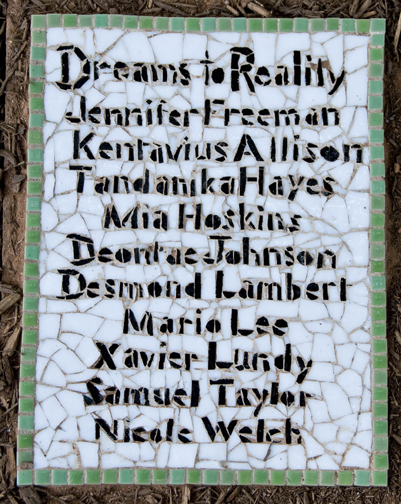 Dreams to Reality
Jennifer Freeman
Kentavius Allison
Tandanika Hayes
Mia Hoskins
Deontae Johnson
Desmond Lambert
Mario Lee
Xavier Lundy
Samuel Taylor
Nicole Welch